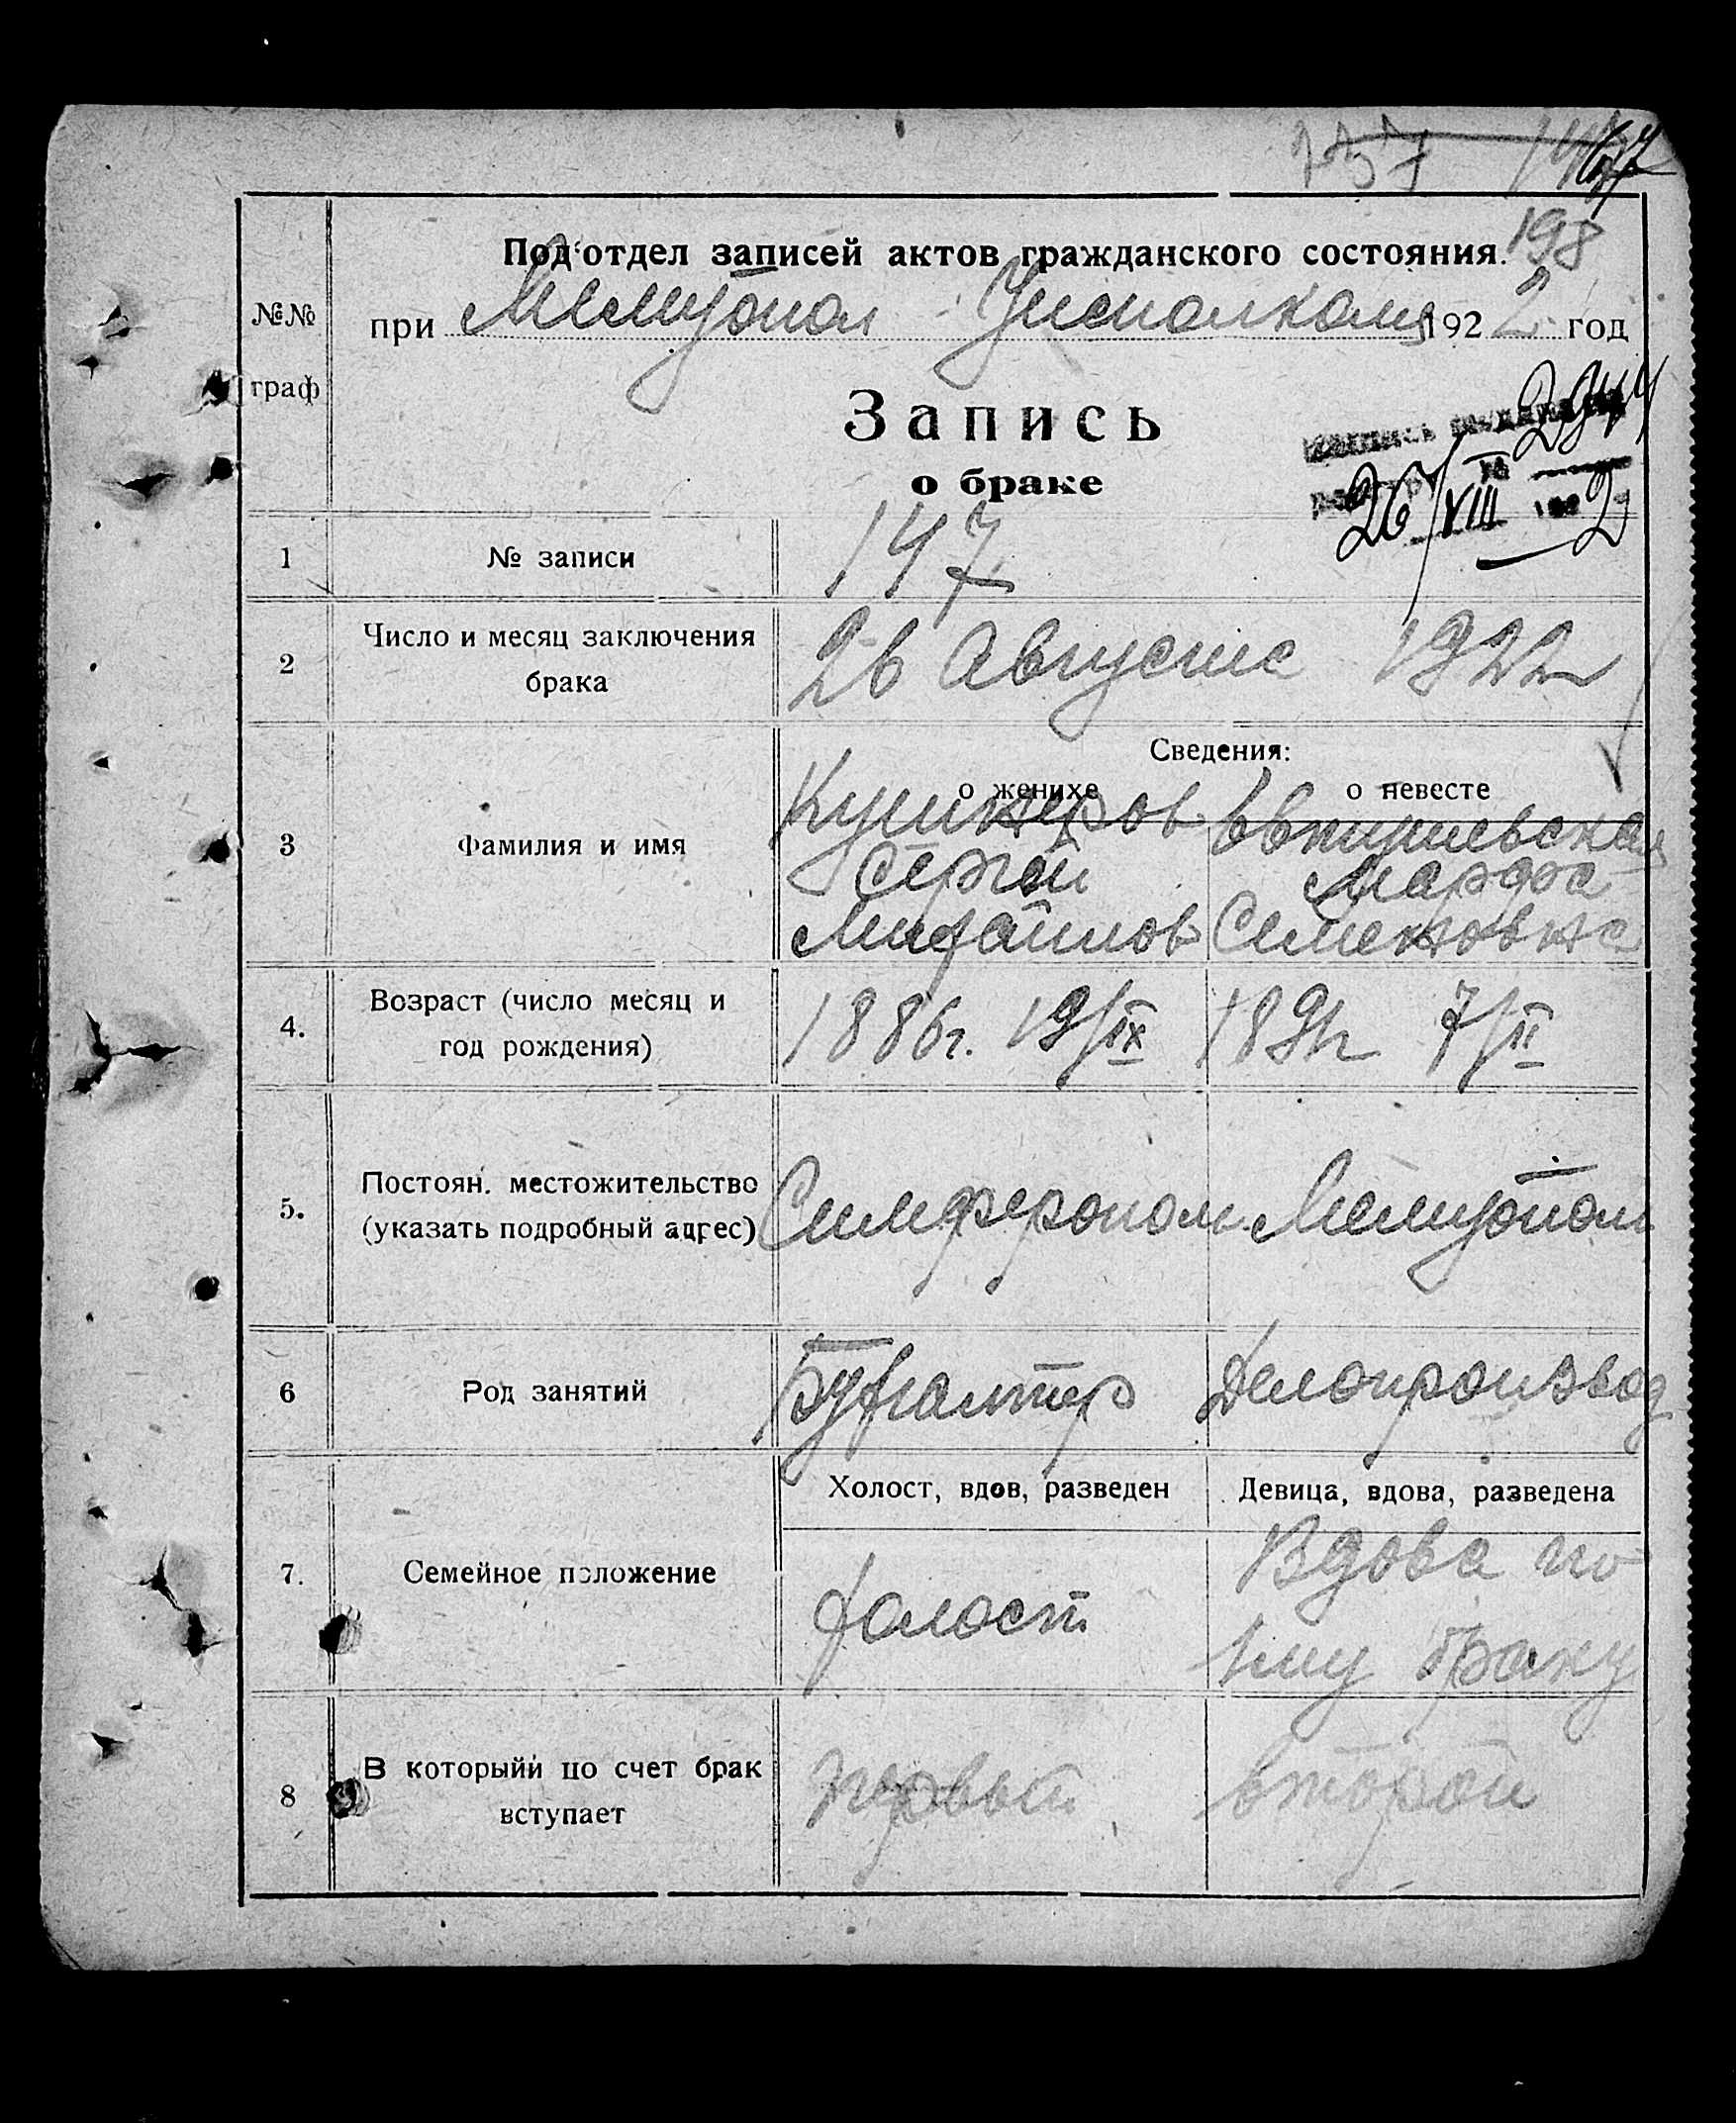 147
198
Под‘отдел записей актов гражданского состояния.
№№ при Мелитопол Уисполкоме 1922 год
граф
Запись
о браке
26/VIII 1922
1 № записи 147
2 Число и месяц заключения брака 26 Августа 1922
Сведения:
о женихе о невесте
3 Фамилия и имя
Сергей Марфа
Михайлов Семеновна
4. Возраст (число месяц и год рождения) 1886г. 19/IX 7/II
5. Постоян. местожительство (указать подробный адрес) Симферополь Мелитополь
6 Род занятий Бухгалтер Делопроизвод
Холост, вдов, разведен Девица, вдова, разведена
7. Семейное положение холост Вдова по
1му браку
8 В которыйи по счет брак вступает первый второй